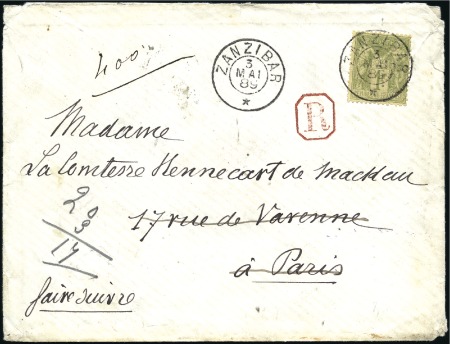 400
ZANZIBAR
3
MAI
89
*
ZANZIBAR
3
MAI
89
*
R
Madame
La Comtesse Hennecart de Mackau
17 rue de Varenne
à Paris
faire suivre